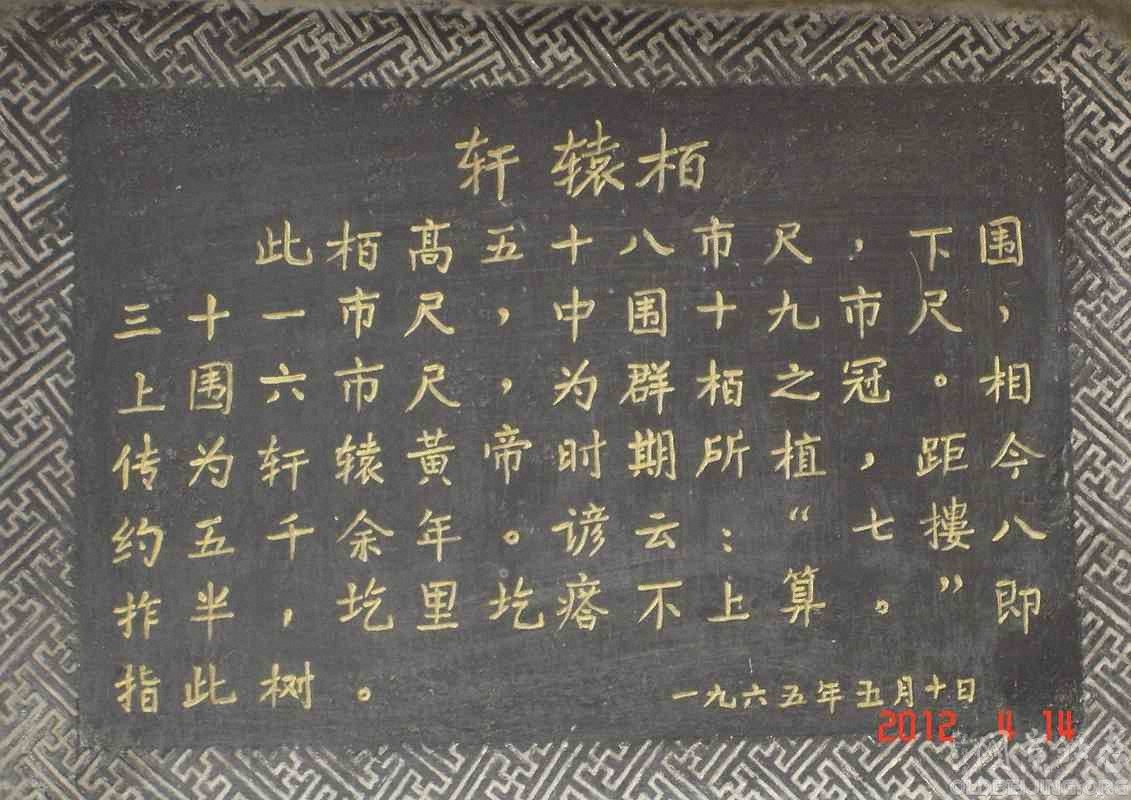 轩辕柏
此栢高五十八市尺，下围
三十一市尺，中围十九市尺，
上围六市尺，为群栢之冠。相
传为轩辕黄帝时期所植，距今
约五千余年。谚云：“七搂八
拃半，圪里圪瘩不上算。”即
指此树。
一九六五年五月十日
2012 4 14
OLDBEIJING.ORG